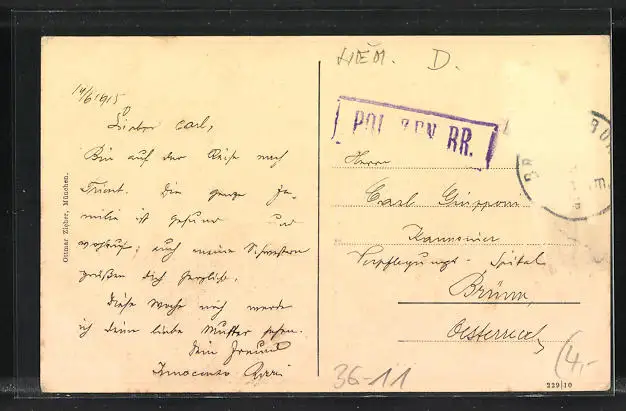 14/6 1915
Lieber Carl,
Bin auf der Reise nach
Trient. Die ganze Fa-
milie ist gesund und
wohlauf; auch meine Schwestern
grüßen dich herzlich.
Diese Woche noch werde
ich deine liebe Mutter sehen.
Dein Freund
Innocenzo
Ottmar Zieher, München.
D.
POL. ZEN. BR.
Herrn
Carl
Kanonier
Verpflegungs-Spital
Brünn,
Oesterreich
36-11
(4,-
229|10